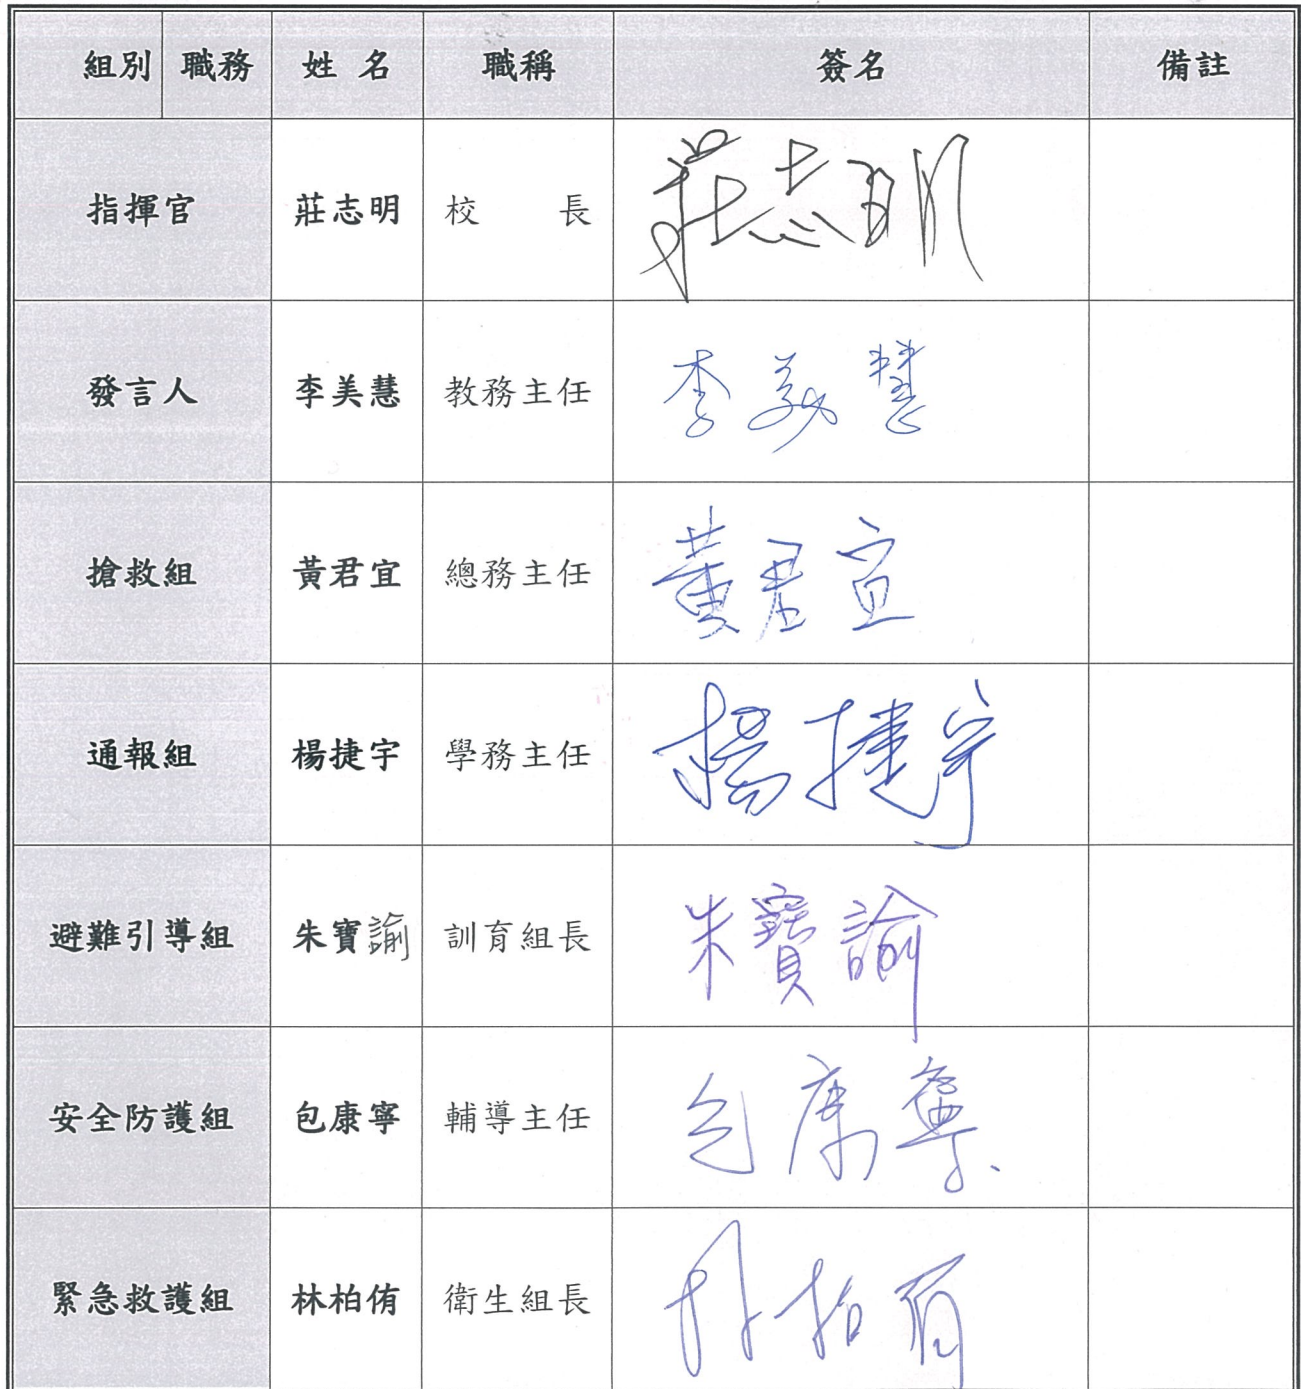 組別 職務 姓 名 職稱 簽名 備註
指揮官 莊志明 校 長 莊志明
發言人 李美慧 教務主任 李美慧
搶救組 黃君宜 總務主任 黃君宜
通報組 楊捷宇 學務主任 楊捷宇
避難引導組 朱寶諭 訓育組長 朱寶諭
安全防護組 包康寧 輔導主任 包康寧
緊急救護組 林柏侑 衛生組長 林柏侑